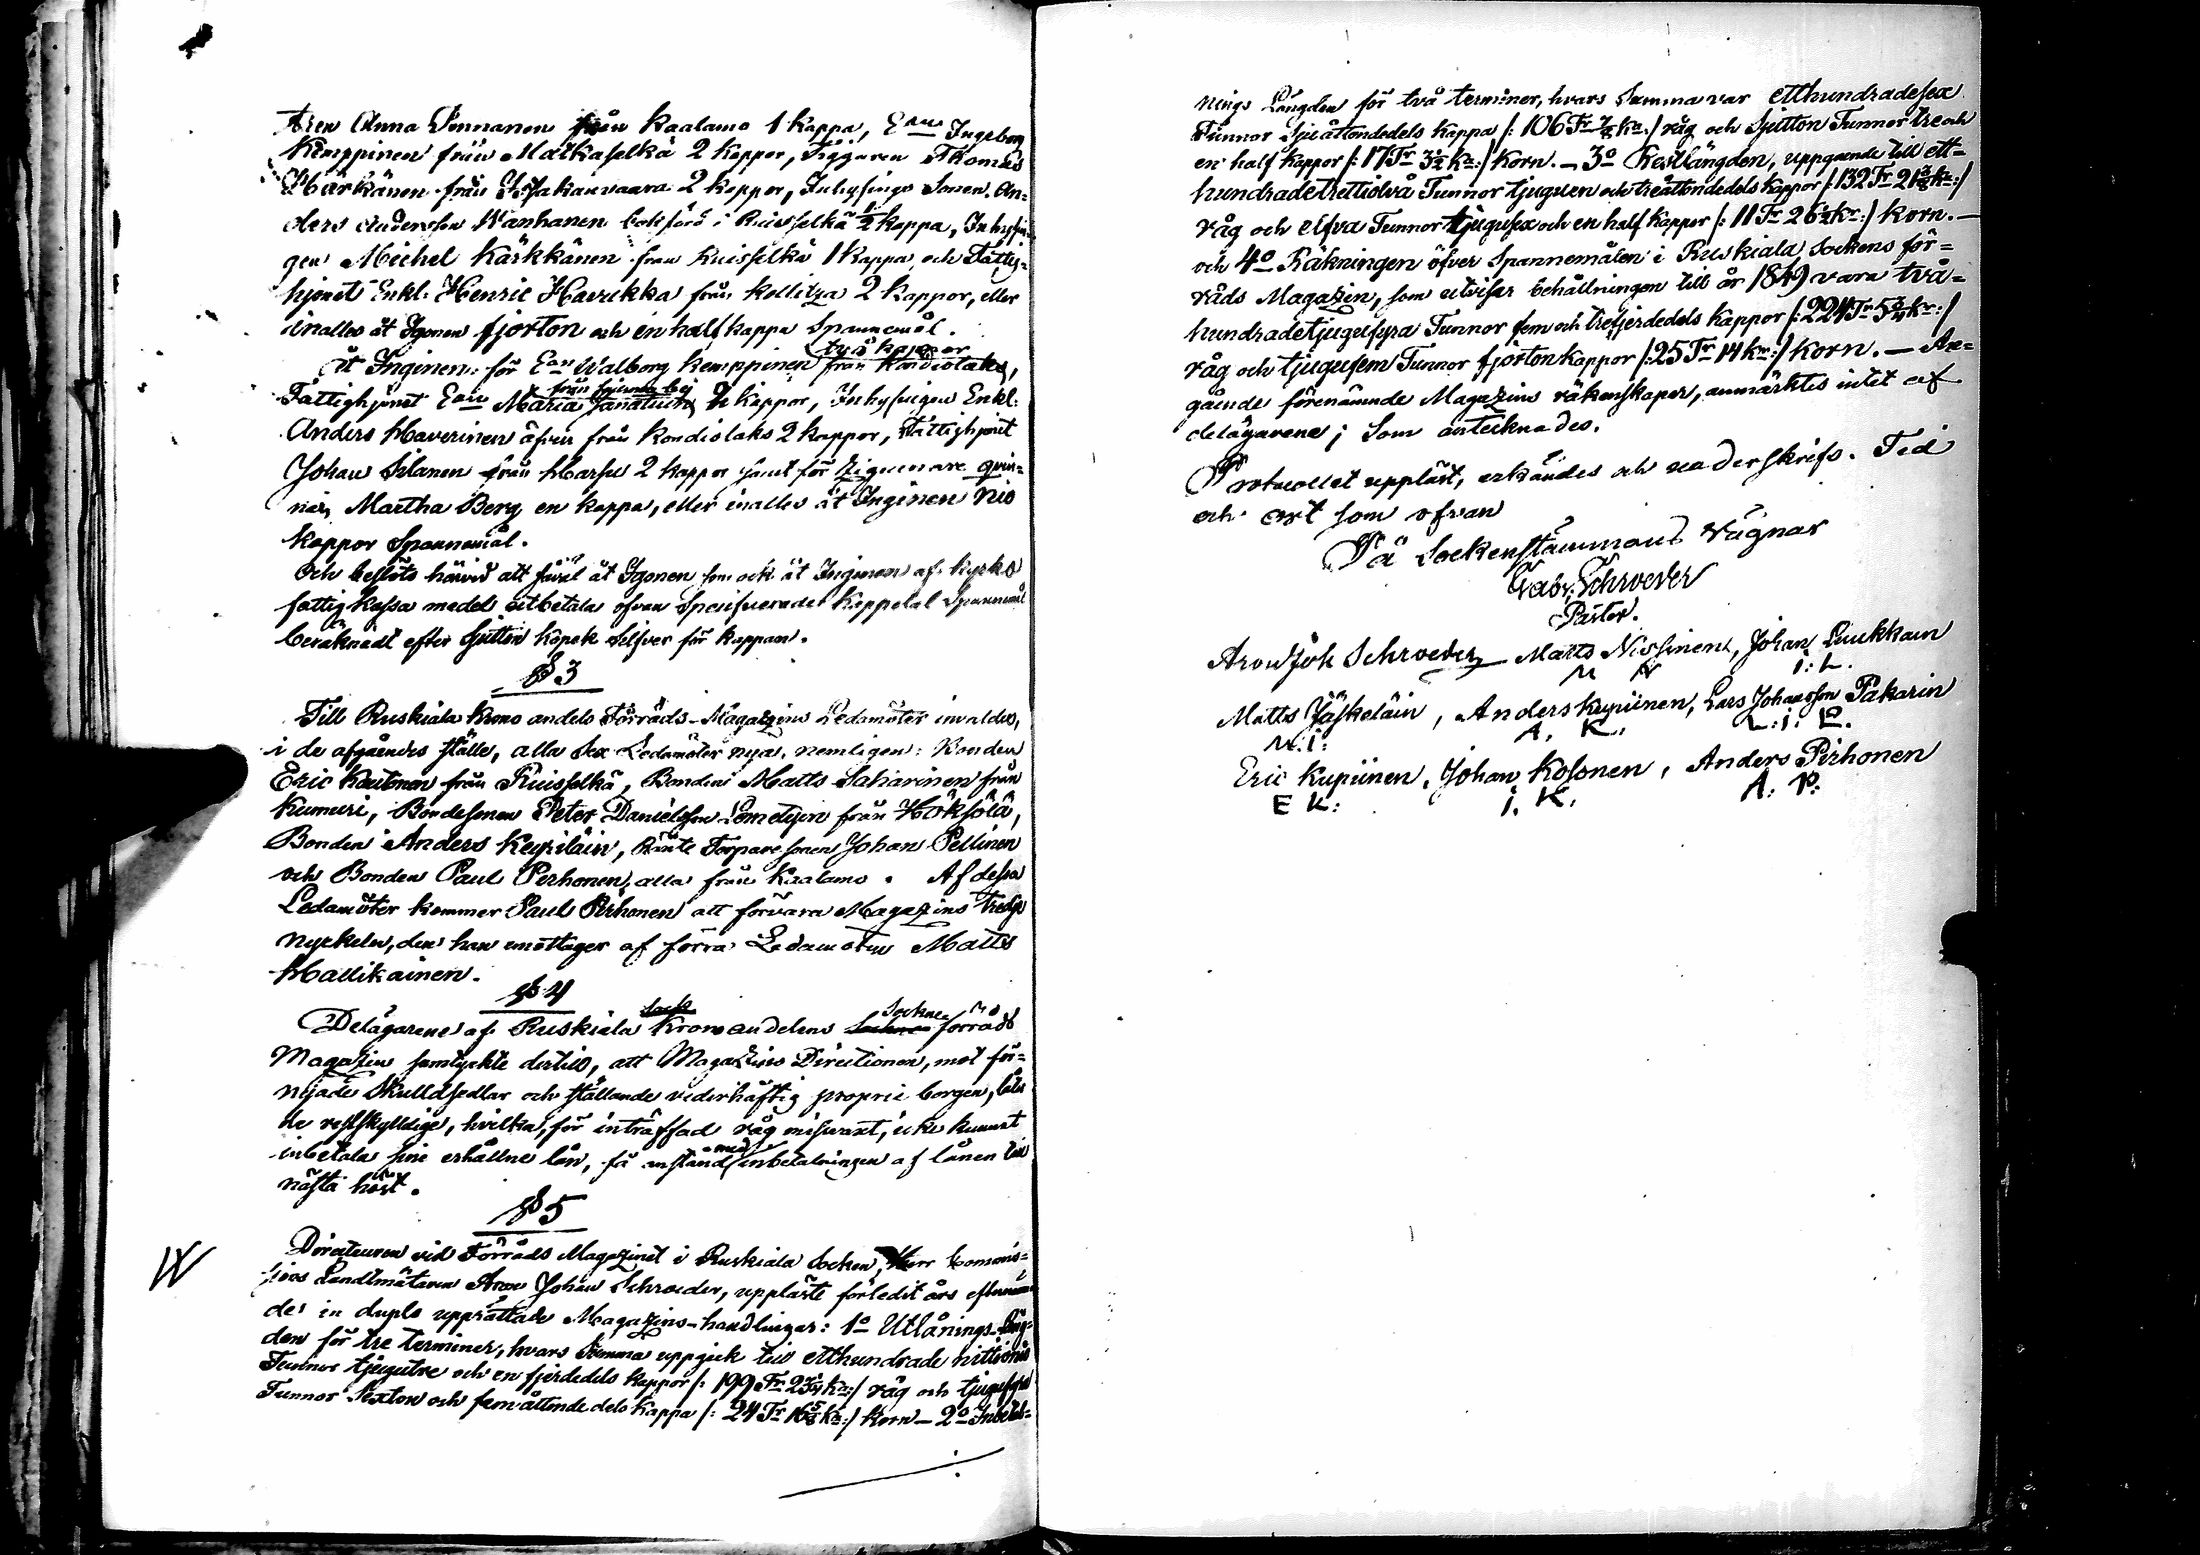 Anna Sennanen från Kaalamo 1 kappa, E:an Ingeborg
Kemppinen från Matkaselkä 2 kappor, Tiggaren Thomas
Härkänen från 2 kappor, Inhysings Sonen An=
ders Andersson Wanhanen bokförd i Ruisselkä ½ kappa, Inhysin
gen Michel Kärkkänen från Ruisselkä 1 kappa, och Fattig=
hjonet Enkl: Henric Havukka från Kollitza 2 kappor, eller
inalles åt Igonen fjorton och en half kappa Spannemål.
två kappor
åt Inginen: för E:an Walborg Kemppinen från Kondiolaks,
Fattighjonet E:an Maria kappor, Inhysingen Enkl:
Anders Haverinen äfven från Kondislaks 2 kappor, Fattighjonet
Johan Silanen från Harsu 2 kappor samt för Zigenare qvin=
nan Martha Berg en kappa, eller inalles åt Inginen nio
kappor Spannemål.
Och beslöts härvid att såväl åt Igonen som ock åt Inginen af kyrko
fattig kassa medel utbetala ofvan Specificerade Kappetal Spannemål
beräknadt efter sjutton kopek Silfver för kappan.
§ 3
Till Ruskiala Krono andels Förråds-Magazins Ledamöter invaldes,
i de afgåendes ställe, alla Sex Ledamöter nya, nemligen: Bonden
Eric Kautonen från Ruisselkä, Bonden Matts Saharinen från
Kumuri, Bondesonen Peter Danielsson Lemetyinen från Höksölä,
Bonden Anders Keyriläin, Torpare sonen Johan Pellinen
och Bonden Paul Perhonen, alla från Kaalamo. Af dessa
Ledamöter kommer Paul Pirhonen att förvara Magazins tredje
nyckeln, den han emottager af förra Ledamoten Matts
Hallikainen.
§ 4
Sockne
Delägarene af Ruskiala Krono andelens förråds
Magazin samtyckte dertill, att Magazins Directionen, mot för=
nyjade Skulldsedlar och ställande vederhäftig proprie borgen, låta
de restskyldige, hvilka, för inträffad råg missvext, icke kunnat
med
inbetala sine erhållne lån, få anstånd inbetalningen af lånen till
nästa höst.
§ 5
Directeuren vid Förråds Magazinet i Ruskiala Socken, Herr Commis=
sions Landtmätaren Aron Johan Schroeder, uppläste förledit års efternämn
de in duplo upprättade Magazins-handlingar: 1o Utlånings-Läng=
den för tre terminer, hvars Summa uppgick till etthundrade nittionio
Tunnor tjugutre och en fjerdedels kappor /: 199 Tr 23¼ kr:/ råg och tjugufyra
Tunnor Sexton och fem åttonde dels kappa /: 24 Tr 16⅝ kr:/ Korn — 2o Inbetal=
nings Längden för två terminer, hvars Summa var etthundradesex
Tunnor Sju åttondedels kappa /: 106 Tr ⅞ ka:/ råg och Sjutton Tunnor tre och
en half kappor /: 17 Tr 3½ kr:/ Korn. — 3o Restlängden, uppgående till ett=
hundradetrettiotvå Tunnor tjuguen och treåttondedels kappor /: 132 Tr 21⅜ kr:/
råg och elfva Tunnor tjugusex och en half kappor /: 11 Tr 26½ kr:/ Korn. —
och 4o Räkningen öfver Spannemålen i Ruskiala Sockens för=
råds Magazin, som utvisar behållningen till år 1849 vara två=
hundradetjugufyra Tunnor fem och trefjerdedels kappor /: 224 Tr 5¾ kr:/
råg och tjugufem Tunnor fjorton kappor /: 25 Tr 14 kr:/ Korn. — An=
gående förenämnde Magazins räkenskaper, anmärktes intet af
delägarene; Som antecknades.
Protocollet uppläst, erkändes och underskrifs. Tid
och ort som ofvan
På Sockenstämmans vägnar
Gab. Schroeder
Pastor.
Aron Joh Schroeder Matts Nissinen, Johan Luukkain
M N I: L.
Matts Jäskeläin, Anders Kupiinen, Lars Johansson Pakarin
M. I: A. K. L: I: P.
Eric Kupiinen, Johan Kosonen, Anders Pirhonen
E K: I. K. A: P: